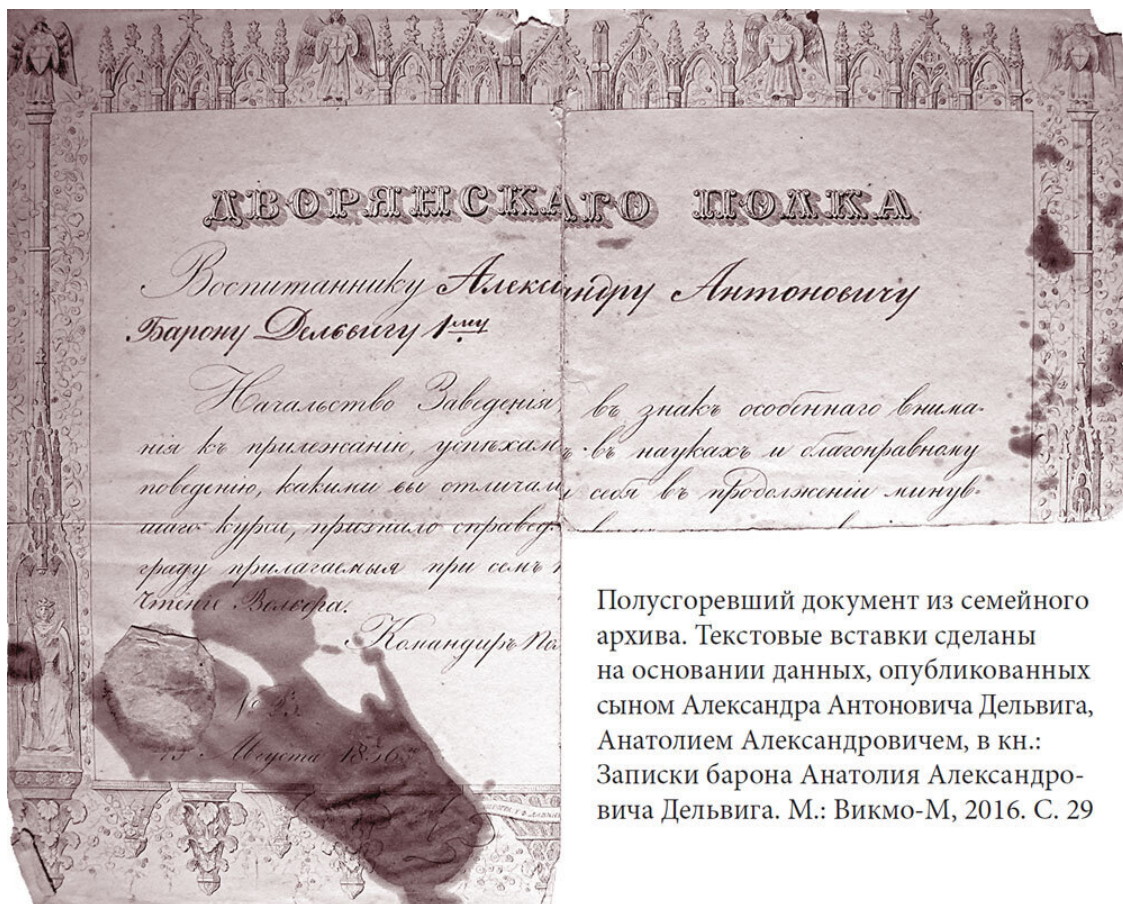 ДВОРЯНСКАГО ПОЛКА
Воспитаннику Александру Антоновичу
Барону Дельвигу 1му
Начальство Заведенія, въ знакъ особеннаго внима-
нія къ прилежанію, успѣхамъ въ наукахъ и благонравному
поведенію, какими вы отличали себя въ продолженіи минув-
шаго курса, признало справед
граду прилагаемыя при семъ
Чтеніе Вольфра.
Командиръ По
№ 23.
15 Августа 1836
Полусгоревший документ из семейного
архива. Текстовые вставки сделаны
на основании данных, опубликованных
сыном Александра Антоновича Дельвига,
Анатолием Александровичем, в кн.:
Записки барона Анатолия Александро-
вича Дельвига. М.: Викмо-М, 2016. С. 29